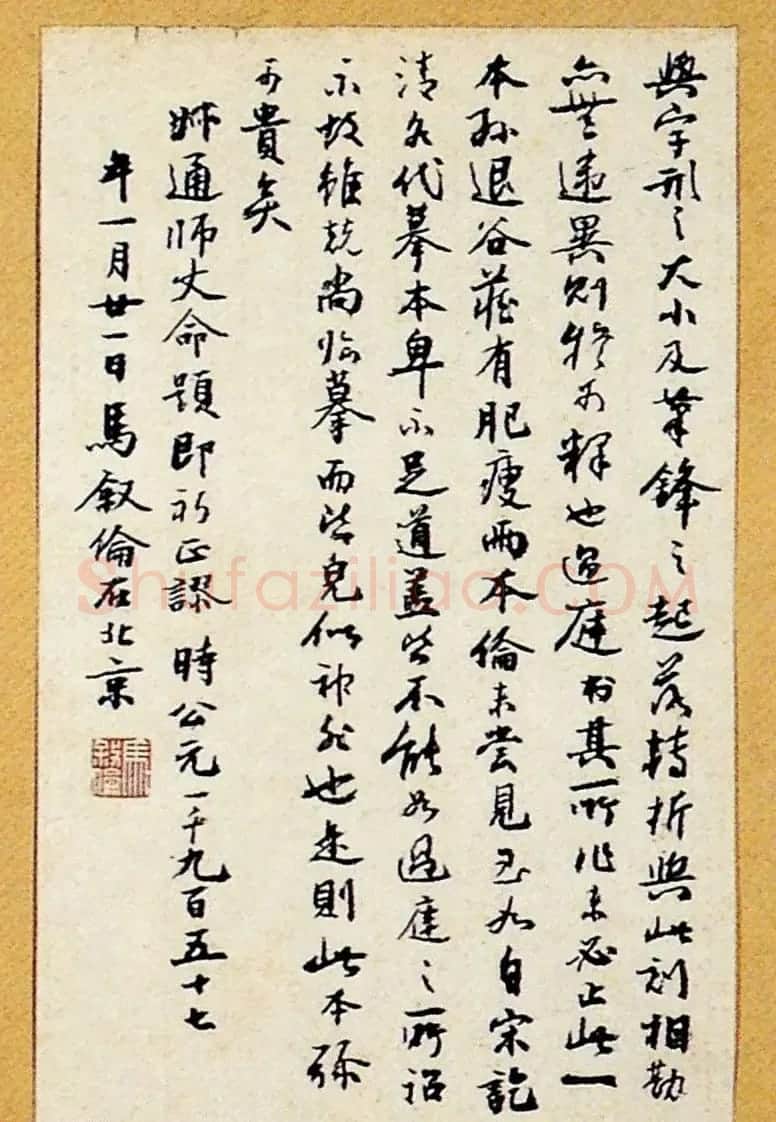 與字形之大小及筆鋒之起落轉折與此刻相勘
亦無違異則可釋也過庭書其所作未必止此一
本孫退谷藏有肥瘦兩本倫未嘗見至如自宋訖
清各代摹本卑不足道蓋皆不能如過庭之所詔
示故雖競尚臨摹而皆皃似神非也是則此本彌
可貴矣
通師丈命題即祈正謬 時公元一千九百五十七
年一月廿一日馬叙倫在北京
Shufaziliao.COM